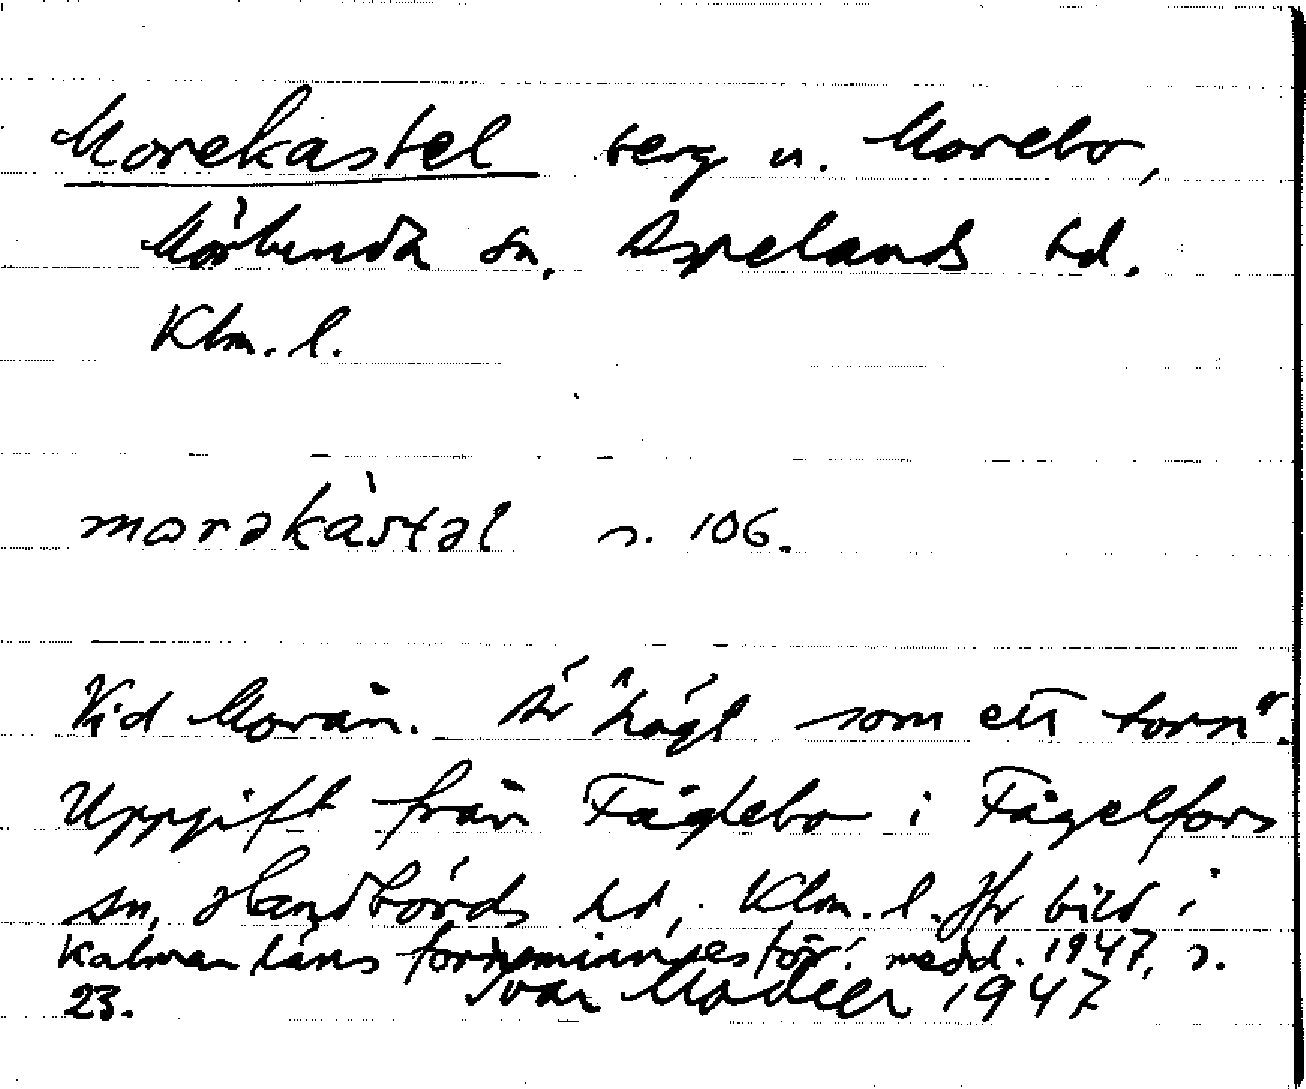 Morekastel berg n. Morebo,
Mörlunda sn. Aspelands hd.
Klm. l.
morəkàstəl s. 106.
Vid Morån. Är "högt som ett torn".
Uppgift från Fåglebo i Fågelfors
sn, Handbörds hd, Klm. l. Jfr bild i
Kalmar läns fornminnesför. medd. 1947, s.
23. Ivar Modéer 1947